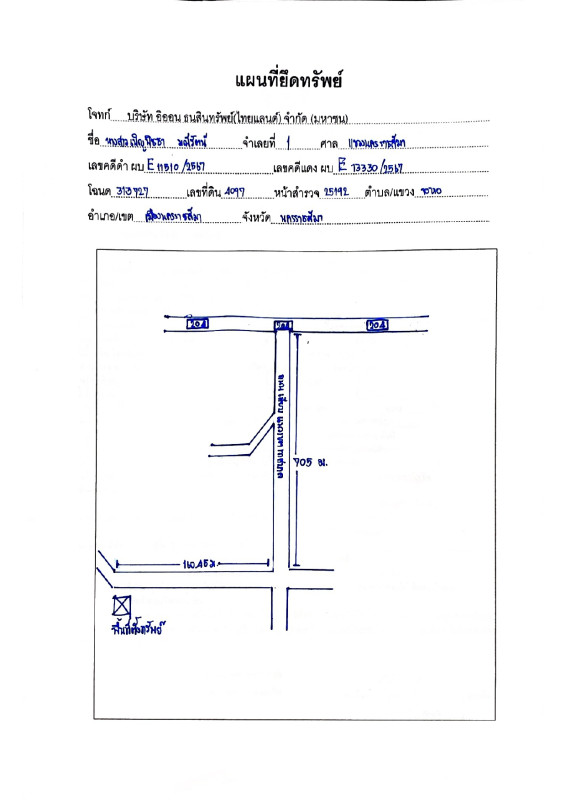 แผนที่ยึดทรัพย์
โจทก์ บริษัท อิออน ธนสินทรัพย์(ไทยแลนด์) จำกัด (มหาชน)
ชื่อ นางสาว มณีรัตน์ จำเลยที่ 1 ศาล แขวงนครราชสีมา
เลขคดีดำ ผบ E 11510 /2567 เลขคดีแดง ผบ E 13330 /2567
โฉนด 313727 เลขที่ดิน 4097 หน้าสำรวจ 25192 ตำบล/แขวง จอหอ
อำเภอ/เขต เมืองนครราชสีมา จังหวัด นครราชสีมา
204 204 204
705 ม.
110.45 ม.
พื้นที่ตั้งทรัพย์